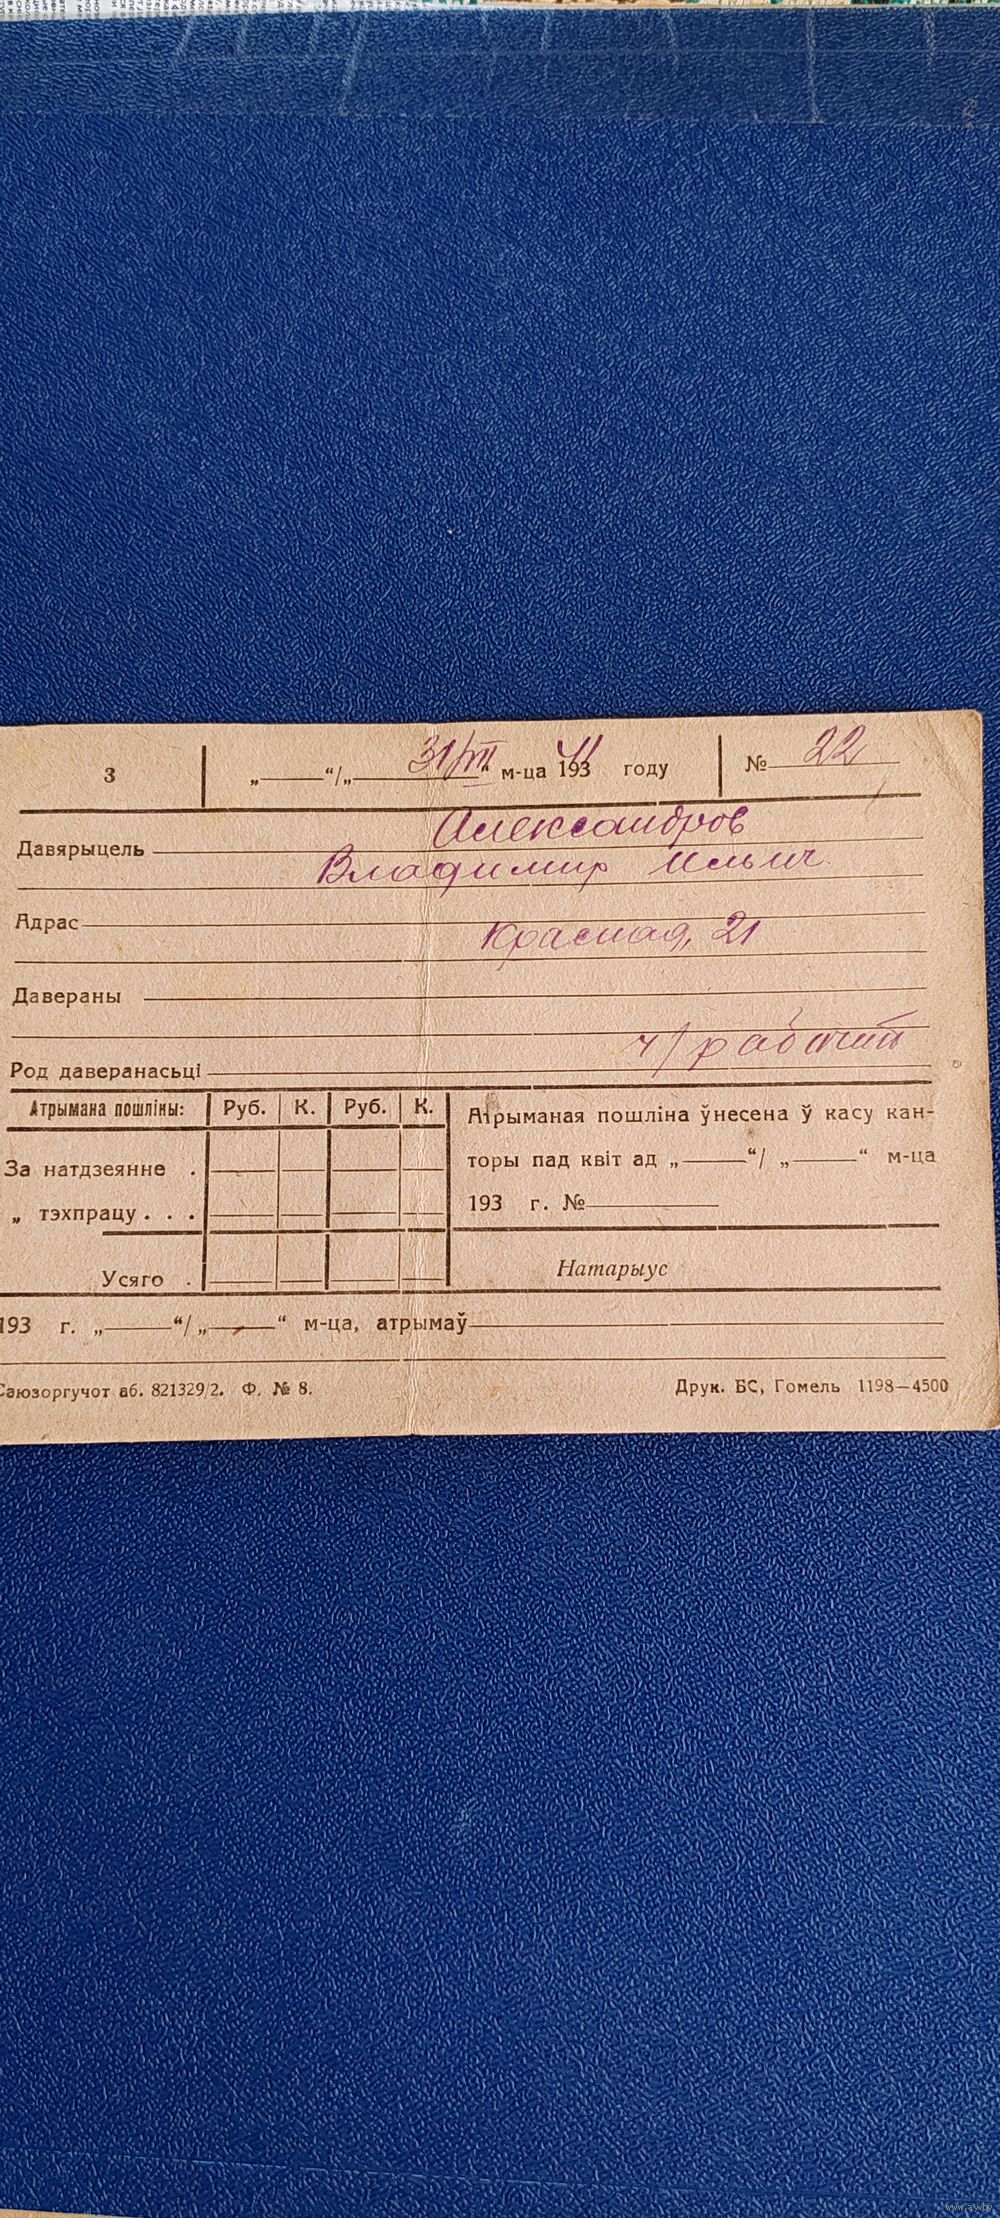 З „——“/„ 31/VII “ м-ца 193 41 году № 22
Давярыцель Александров
Владимир Ильич
Адрас Красная, 21
Давераны
ч/рабочий
Род даверанасьці
Атрымана пошліны: Руб. К. Руб. К.
За натдзеянне .
„ тэхпрацу . . .
Усяго .
Атрыманая пошліна ўнесена ў касу кан-
торы пад квіт ад „——“/ „——“ м-ца
193 г. №
Натарыус
193 г. „——“/„——“ м-ца, атрымаў
Саюзоргучот аб. 821329/2. Ф. № 8.
Друк. БС, Гомель 1198—4500
www.ay.by